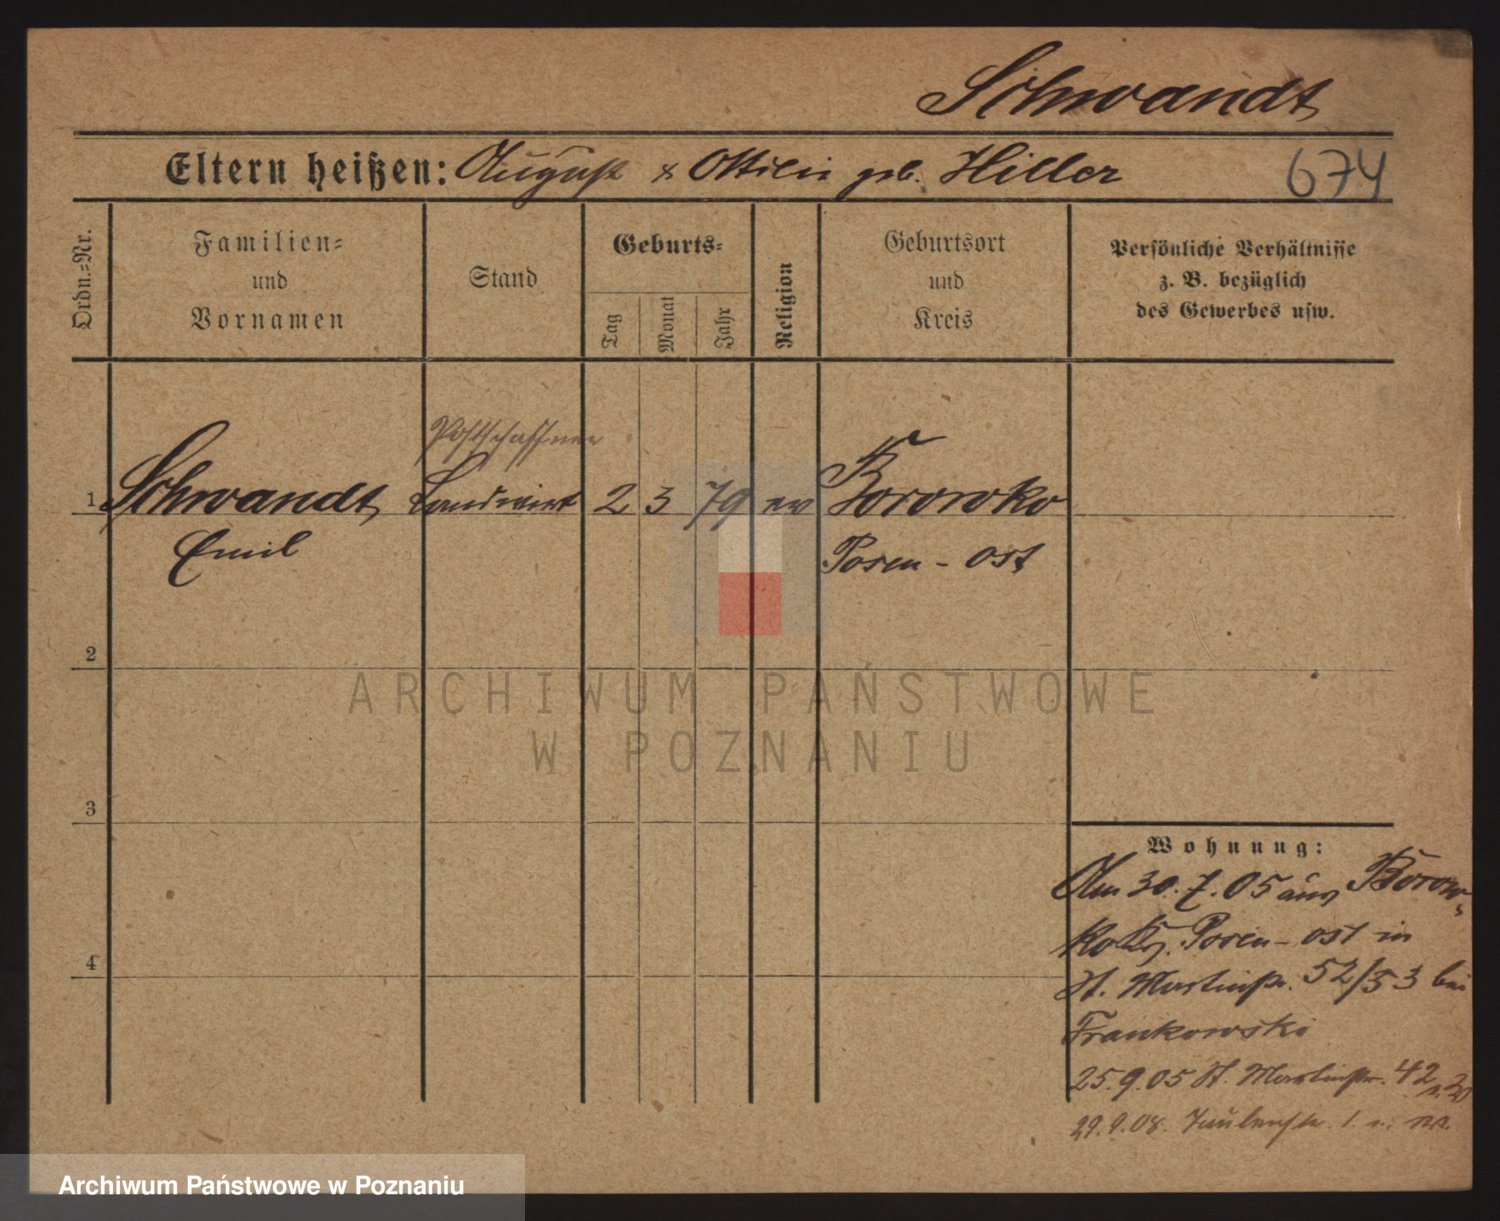 Schwandt
Eltern heißen: August & Ottilie geb. Hiller
674
Ordn.=Nr.
Familien=
und
Vornamen
Stand
Geburts=
Tag
Monat
Jahr
Religion
Geburtsort
und
Kreis
Persönliche Verhältnisse
z. B. bezüglich
des Gewerbes usw.
Postschaffner
1 Schwandt Landwirt 2 3 79 ev Borowko
Emil Posen - ost
2
ARCHIWUM PAŃSTWOWE
W POZNANIU
3
Wohnung:
Am 30.7.05 aus Borow-
ko Kr. Posen - ost in
St. Martinstr. 52/53 bei
Frankowski
4
25.9.05 St. Martinstr. 42
29.9.08.
Archiwum Państwowe w Poznaniu